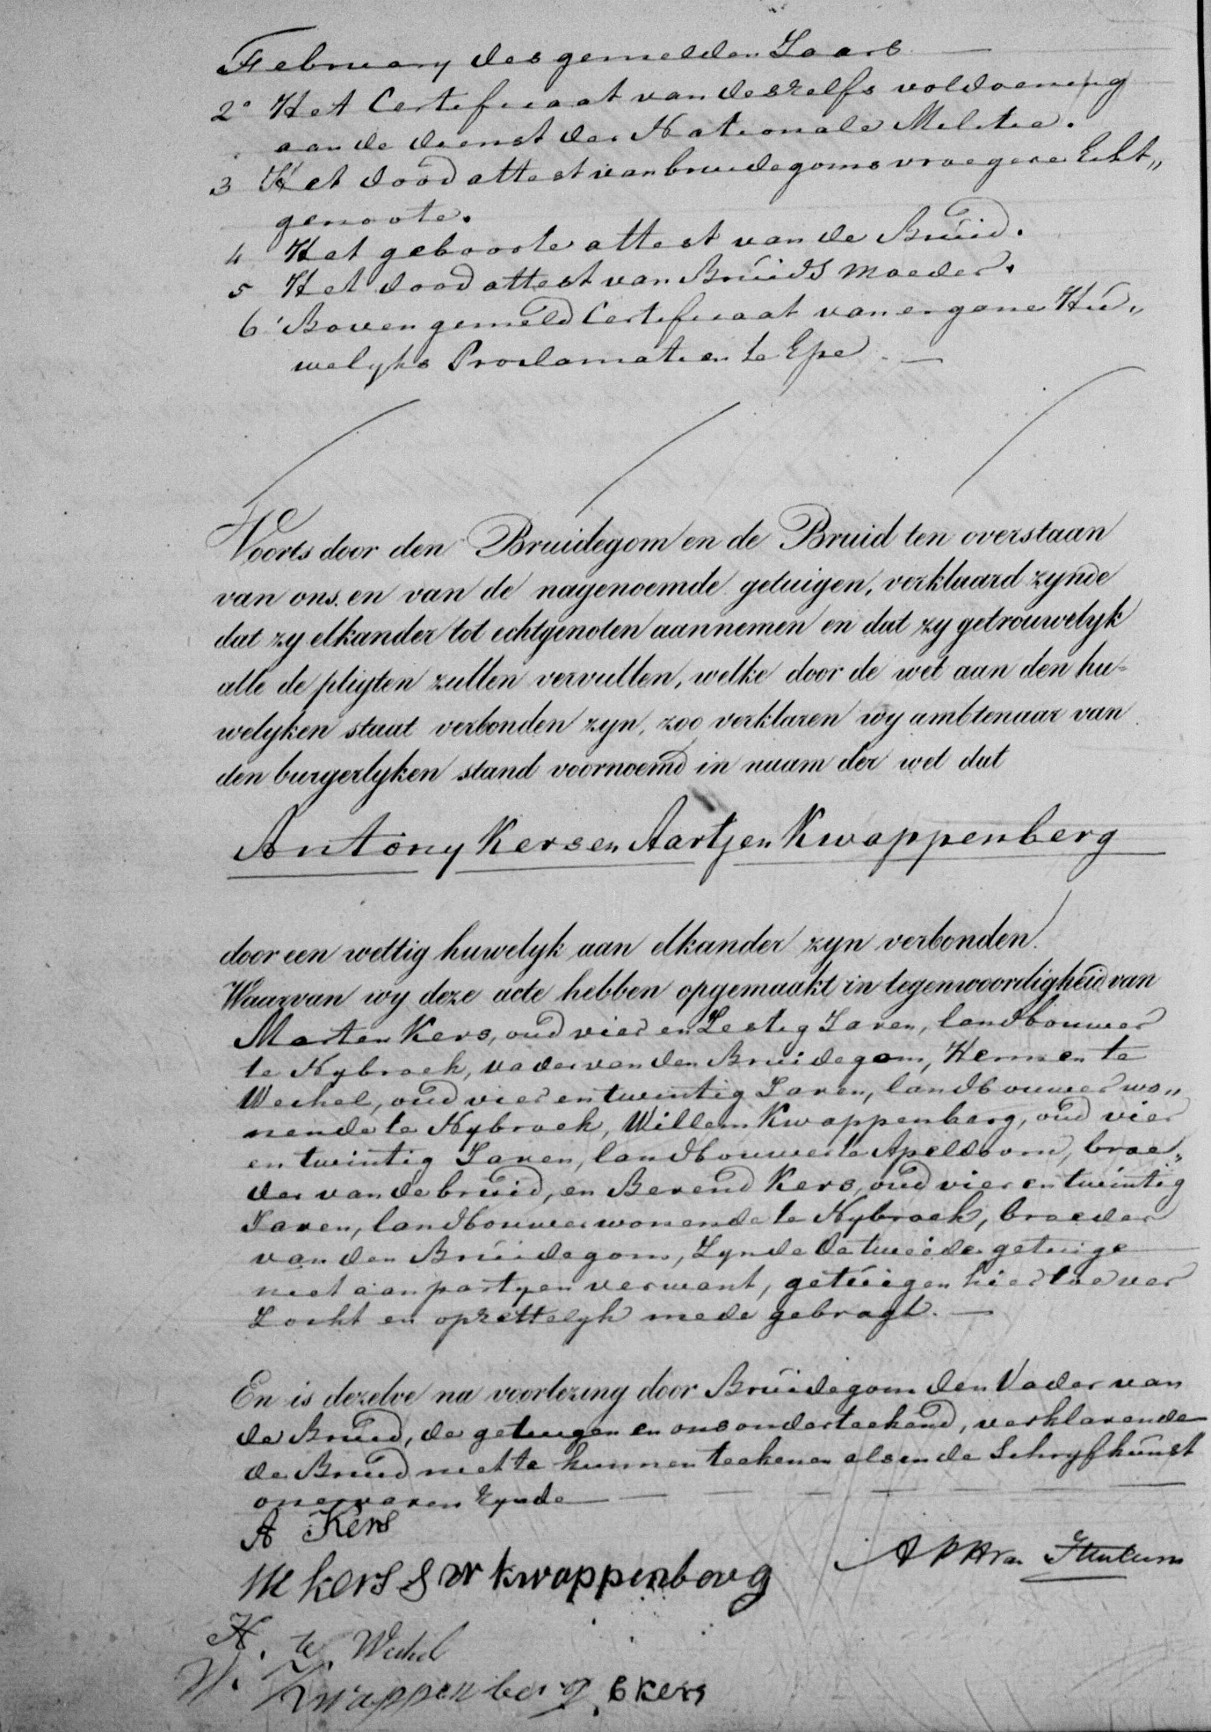 February des gemelden Jaars
2° Het Certificaat van deszelfs voldoening
aan de dienst der Nationale Militie.
3 Het dood attest van bruidegoms vroegere Echt„
genoote.
4 Het geboorte attest van de Bruid.
5 Het dood attest van Bruids Moeder.
6 Boven gemeld Certificaat van ergane Hu„
welyks Proclamatien te Epe
Voorts door den Bruidegom en de Bruid ten overstaan
van ons en van de nagenoemde getuigen, verklaard zynde
dat zy elkander tot echtgenoten aannemen en dat zy getrouwelyk
alle de pligten zullen vervullen, welke door de wet aan den hu-
welyken staat verbonden zyn, zoo verklaren wy ambtenaar van
den burgerlyken stand voornoemd in naam der wet dat
Antony Kers en Aartjen Kwappenberg
door een wettig huwelyk aan elkander zyn verbonden.
Waarvan wy deze acte hebben opgemaakt in tegenwoordigheid van
Marten Kers, oud vier en Zestig Jaren, landbouwer
te Nybroek, vader van den Bruidegom, Hermen te
Wechel, oud vier en twintig Jaren, landbouwer wo„
nende te Nybroek, Willem Kwappenberg, oud vier
en twintig Jaren, landbouwer te Apeldoorn, broe„
der van de bruid, en Berend Kers, oud vier en twintig
Jaren, landbouwer wonende te Nybroek, broeder
van den Bruidegom, Zynde de tweede getuige
niet aan partyen verwant, getuigen hier toe ver
Zocht en opzettelyk mede gebragt.
En is dezelve na voorlezing door Bruidegom den Vader van
de Bruid, de getuigen en ons onderteekend, verklarende
de Bruid niet te kunnen teekenen als in de Schryfkunst
onervaren Zynde
A Kers
M kers G W kwappenberg
H. te Wechel
W. Kwappenberg B kers